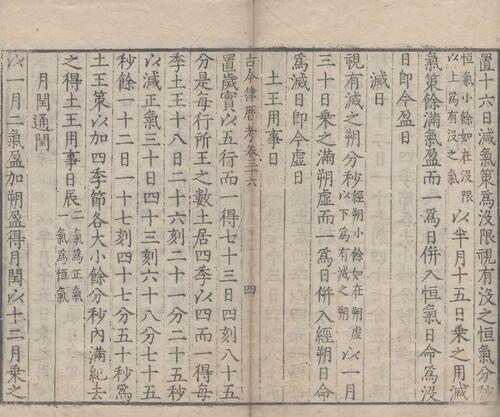 置十六日減氣策爲沒限視有沒之恒氣分秒
恒氣小餘如在沒限
以上爲有沒之氣
以半月十五日乘之用減
氣策餘滿氣盈而一爲日併入恒氣日命爲沒
日即今盈日
滅日
視有滅之朔分秒
經朔小餘如在朔虛
以下爲有滅之朔
以一月
三十日乘之滿朔虛而一爲日併入經朔日命
爲滅日即今虛日
土王用事日
古今律曆考卷三十六
四
置歲實以五行而一得七十三日四刻八十五
分是每行所王之數土居四季以四而一得每
季土王十八日二十六刻二十一分二十五秒
以減正氣三十日四十三刻六十八分七十五
秒餘一十二日一十七刻四十七分五十秒爲
土王策以加四季節各大小餘分秒內滿紀去
之得土王用事日辰
二氣爲正氣
一氣爲恒氣
月閏通閏
以一月二氣盈加朔盈得月閏以十二月乘之